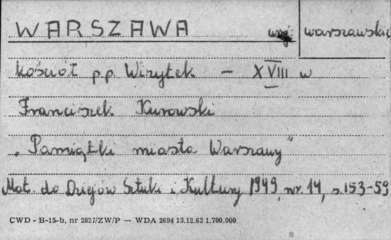 WARSZAWA woj. warszawskie
kościół p.p. Wizytek — XVIII w
Franciszek Kurowski
"Pamiątki miasta Warszawy"
Mat. do Dziejów Sztuki i Kultury 1949, nr. 14, s. 153-59
CWD - B-15-b, nr 2827/ZW/P — WDA 2694 13.12.62 1.700.000